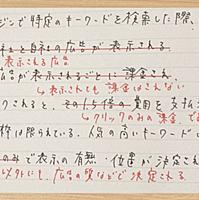 ジンで特定のキーワードを検索した際、
社と自社の広告が表示される
表示される広告
広告が表示されるごとに課金され
表示されても課金はされない
クされると、その1.5倍の費用を支払
クリックのみの課金
枠は限られている。人気の高いキーワード
のみで表示の有無・位置が決定され
以外にも、広告の質などで決定される